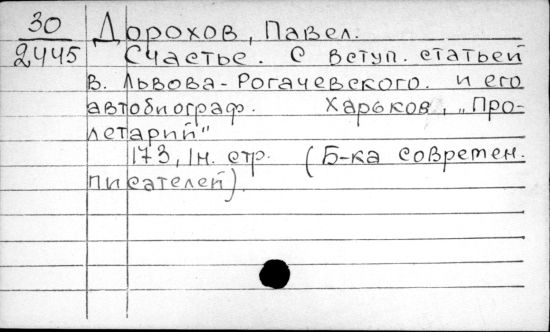 30 Дорохов, Павел.
2445 Счастье. С вступ. статьей
В. Львова-Рогачевского. и его
автобиограф. Харьков, „Про-
летарий"
173, 1н. стр. (Б-ка современ.
писателей).